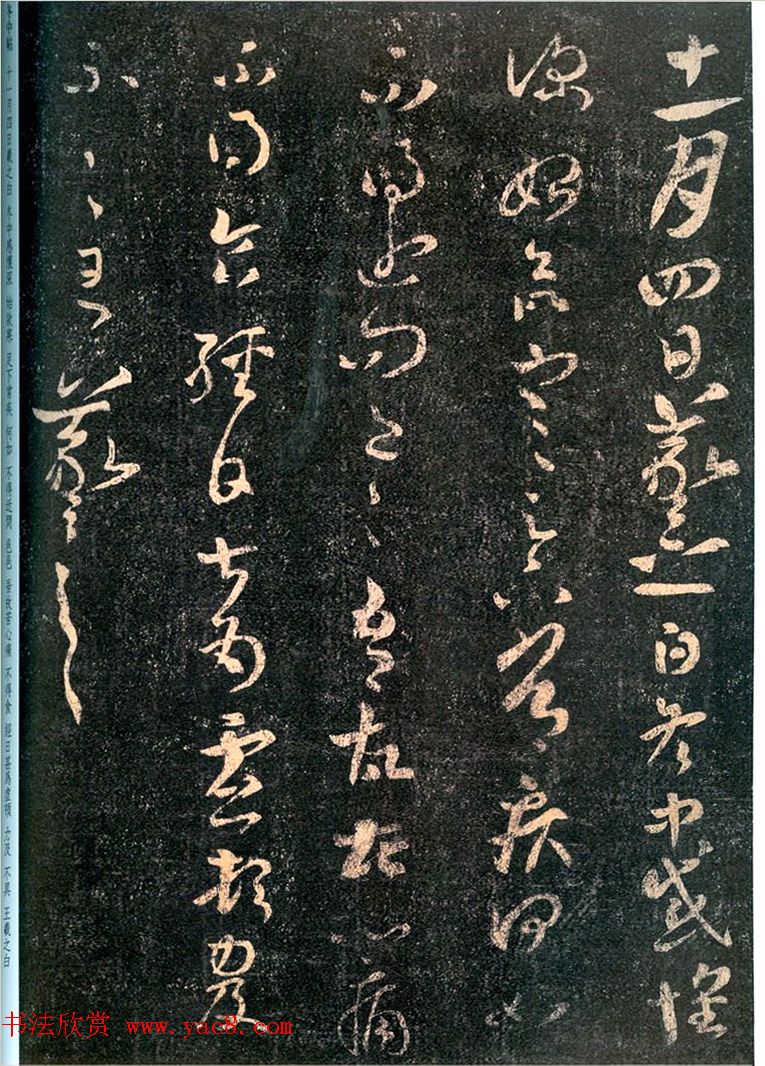 十一月四日羲之白冬中感懷
深始欲寒足下常疾何如
不得近問邑邑吾故苦心痛
不得食經日甚爲虛頓力及
不具王羲之
冬中帖 十一月四日羲之白 冬中感懷深 始欲寒 足下常疾 何如 不得近問 邑邑 吾故苦心痛 不得食 經日甚爲虛頓 力及 不具 王羲之白
书法欣赏 www.yac8.com